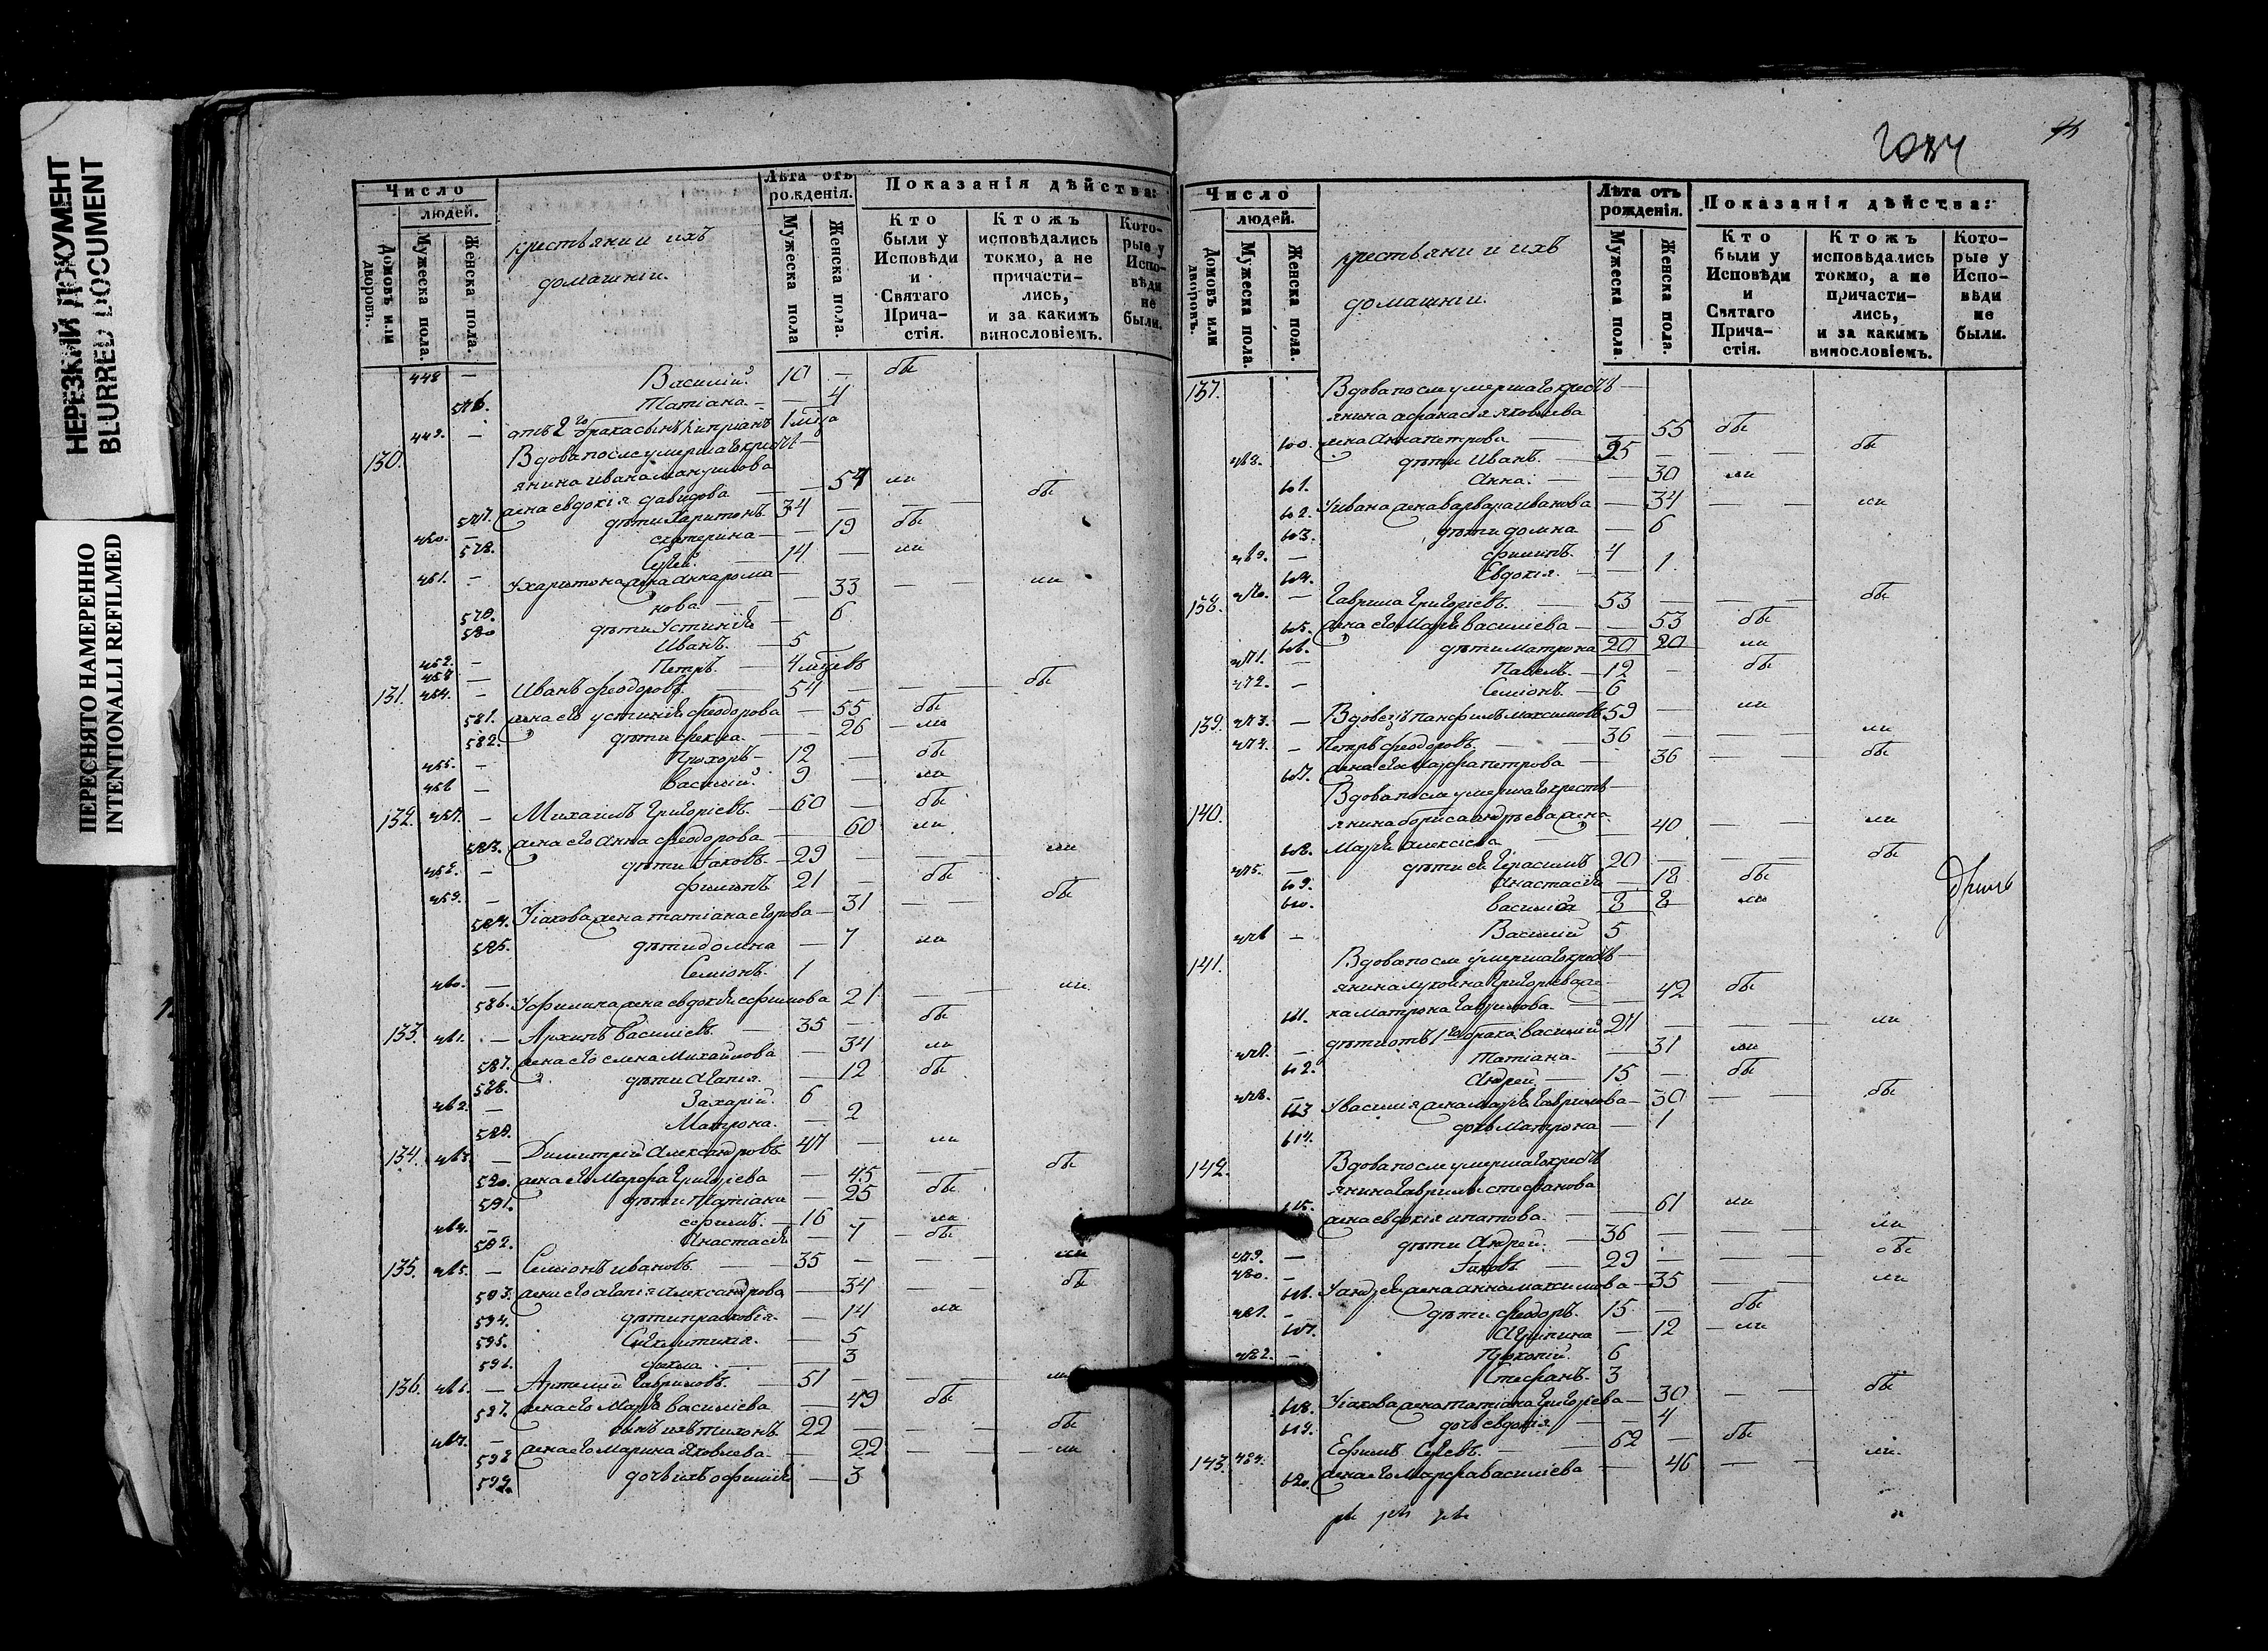 НЕРЕЗКИЙ ДОКУМЕНТ
BLURRED DOCUMENT
ПЕРЕСНЯТО НАМЕРЕННО
INTENTIONALLI REFILMED
Число
людей.
Домовъ или дворовъ.
Мужеска пола.
Женска пола.
крестьяни и ихъ
домашніи.
Лѣта отъ рожденія.
Мужеска пола
Женска пола.
Показанія дѣйства:
Кто были у Исповѣди и Святаго Прича- стія.
Ктожъ исповѣдались токмо, а не причасти- лись, и за какимъ винословіемъ.
Кото- рые у Испо- вѣди не были.
448 — Василій. 10 — бы
576. Татіана — 4
449. — отъ 2го брака сынъ Кипріанъ 1 мца
130. Вдова после умершаго крест
янина Ивана
577. жена евдокія давидова — 54 ли
450. — дѣти Харитонъ 34 — бы
578. екатерина — 19 бы
451. — 14 — ли
У харитона жена анна рома
579. нова — 33 — ли
580 дѣти Устинія — 6
452. — Иванъ. 5
453 — Петръ. 4 мцевъ
131. 454. — Иванъ феодоровъ. 54 — — бы
581. жена его устинія феодорова — 55 бы
582. дѣти фекла. — 26 ли
455. — Прохоръ 12 — бы
456 — василій. 9 — ли
132. 457. — Михаилъ Григоріевъ. 60 — бы
583. жена его анна феодорова — 60 ли
458. — дѣти Іаковъ 29 — — ли
459. — филипъ 21 — бы
584. У іакова жена татіана егорова — 31 бы
585. дѣти домна — 7 ли
460. — Семіонъ. 1
586. У филипа жена евдокія ефимова 21 — ли
133. 461. — Архипъ Василіевъ. 35 — бы
587. жена его елена Михайлова — 34 ли
588. дѣти агапія. — 12 бы
462. — Захарій. 6
589. Матрона. — 2
134. 463. — Димитрій Александровъ 47 — ли
590. жена его Марфа Григоріева — 45 — бы
591. дѣти Татіана — 25 бы
464. — ефимъ. 16 — ли
592. Анастасія — 7 — бы
135. 465. — Семіонъ ивановъ. 35 — — ли
593. жена его агапія александрова — 34 — бы
594. дѣти прасковія. — 14 ли
595. — 5
596. фекла — 3
136. 466. — Артемій Гавриловъ. 51 — — ли
597. жена его Марія василіева — 49 бы
467. — сынъ ихъ тихонъ 22 — — бы
598 жена его Марина Яковлева — 22 — ли
599. дочь ихъ офимія — 3
Число
людей.
Домовъ или дворовъ.
Мужеска пола.
Женска пола.
крестьяни и ихъ
домашніи.
Лѣта отъ рожденія.
Мужеска пола.
Женска пола.
Показанія дѣйства:
Кто были у Исповѣди и Святаго Прича- стія.
Ктожъ исповѣдались токмо, а не причасти- лись, и за какимъ винословіемъ.
Кото- рые у Испо- вѣди не были.
137. Вдова после умершаго крестъ
янина афанасія яковлева
600. жена Анна петрова — 55 бы
468. дѣти Иванъ. 35 — — бы
601. Анна. — 30 ли
602. У ивана жена варвара иванова — 34 — ли
603. дѣти домна — 6
469. — филипъ. 4
604. Евдокія. — 1
138. 470. — Гаврила Григоріевъ. 53 — — бы
605. жена его Марія василіева — 53 бы
606. дѣти матрона 20 20 ли
471. — Павелъ. 12 — бы
472. — Семіонъ. 6
139. 473. — Вдовецъ Панфилъ Максимовъ 59 — ли
474. — Петръ феодоровъ. 36 — — ли
607. жена его Марфа петрова — 36 — бы
140. Вдова после умершаго кресть
янина бориса андреева жена
608. Марія алексіева — 40 — ли
475. — дѣти ея Герасимъ 20 — — бы
609. Анастасія — 18 бы
610. василиса 8 8 ли
476 — Василий 5
141. Вдова после умершаго кресть
янина Григорьева же
611. на матрона Гаврилова — 42 бы
477. — дѣти отъ 1го брака василий 27 — — ли
612. Татіана — 31 ли
478. — Андрей 15 — бы
613 У василия жена марія Гаврилова — 30 — бы
614. дочь Матрона — 1
142. Вдова после умершаго кресть
янина Гаврилы стефанова
615. жена евдокія ипатова. — 61 ли
479. — дѣти Андрей. 36 — — ли
480. — Іаковъ 29 — — бы
616. У андрея жена анна максимова — 35 — ли
481. — дѣти феодоръ. 15 — бы
617. Агрипина — 12 — ли
482. — Прокопій. 6
Стефанъ. 3
618. У іакова жена татіана Григорьева — 30 — бы
619. дочь евдокія — 4
143. 484. Ефимъ 62 — бы
620. жена его Марфа василіева — 46 — ли